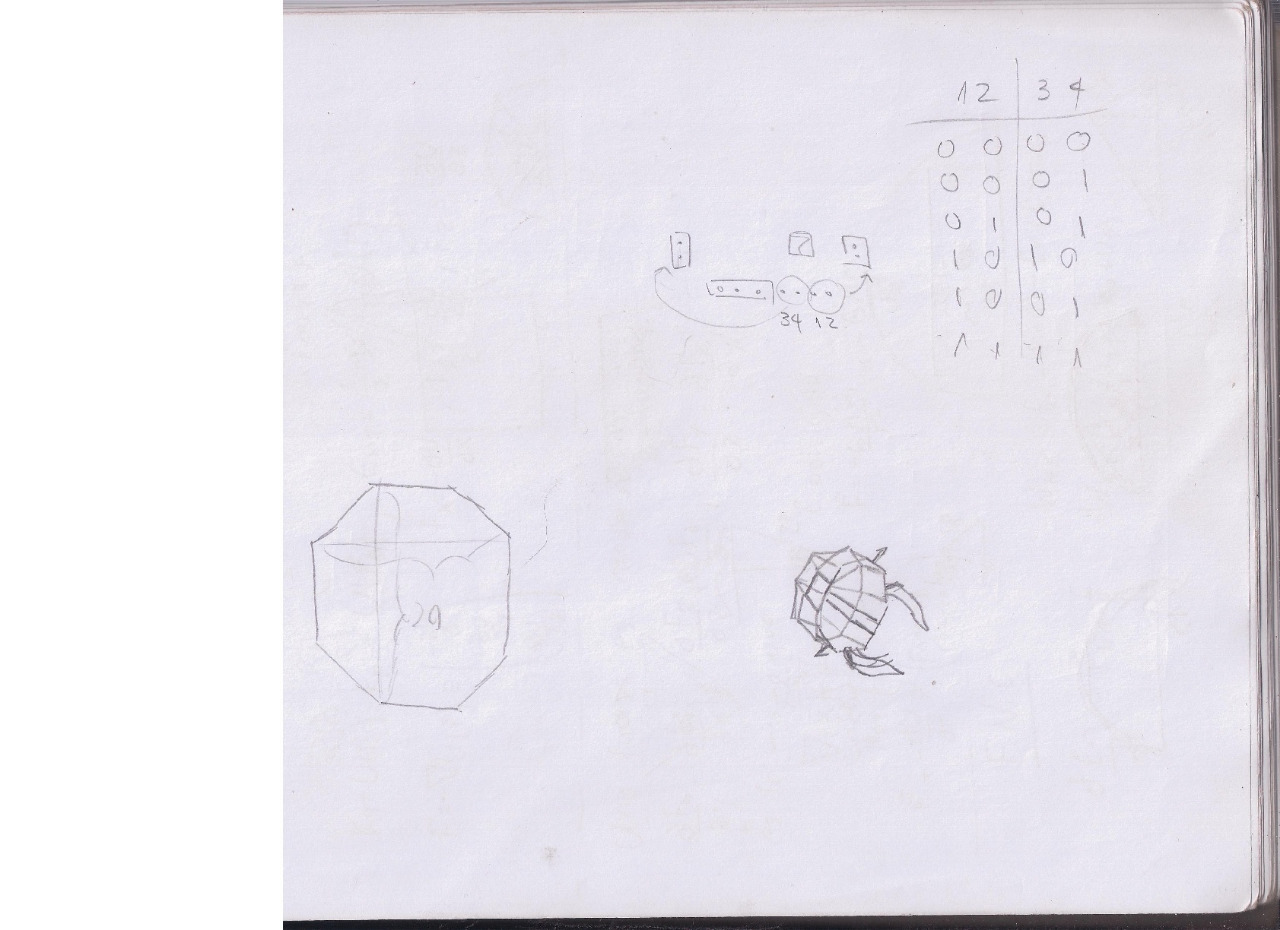 12 34
0 0 0 0
0 0 0 1
0 1 0 1
1 0 1 0
1 0 0 1
1 1 1 1
34 12